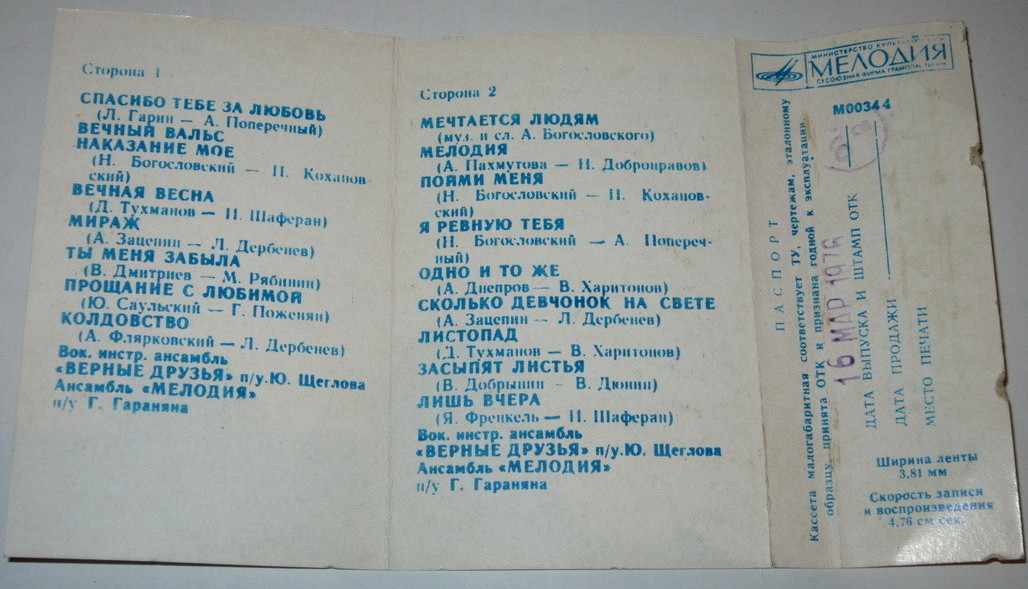 Сторона 1
СПАСИБО ТЕБЕ ЗА ЛЮБОВЬ
(Л. Гарин — А. Поперечный)
ВЕЧНЫЙ ВАЛЬС
НАКАЗАНИЕ МОЕ
(Н. Богословский — И. Коханов-
ский)
ВЕЧНАЯ ВЕСНА
(Д. Тухманов — И. Шаферан)
МИРАЖ
(А. Зацепин — Л. Дербенев)
ТЫ МЕНЯ ЗАБЫЛА
(В. Дмитриев — М. Рябинин)
ПРОЩАНИЕ С ЛЮБИМОЙ
(Ю. Саульский — Г. Поженян)
КОЛДОВСТВО
(А. Флярковский — Л. Дербенев)
Вок. инстр. ансамбль
«ВЕРНЫЕ ДРУЗЬЯ» п/у.Ю. Щеглова
Ансамбль «МЕЛОДИЯ»
п/у Г. Гараняна
Сторона 2
МЕЧТАЕТСЯ ЛЮДЯМ
(муз. и сл. А. Богословского)
МЕЛОДИЯ
(А. Пахмутова — Н. Добронравов)
ПОЙМИ МЕНЯ
(Н. Богословский — И. Коханов-
ский)
Я РЕВНУЮ ТЕБЯ
(Н. Богословский — А. Попереч-
ный)
ОДНО И ТО ЖЕ
(А. Днепров — В. Харитонов)
СКОЛЬКО ДЕВЧОНОК НА СВЕТЕ
(А. Зацепин — Л. Дербенев)
ЛИСТОПАД
(Д. Тухманов — В. Харитонов)
ЗАСЫПЯТ ЛИСТЬЯ
(В. Добрынин — В. Дюнин)
ЛИШЬ ВЧЕРА
(Я. Френкель — И. Шаферан)
Вок. инстр. ансамбль
«ВЕРНЫЕ ДРУЗЬЯ» п/у.Ю. Щеглова
Ансамбль «МЕЛОДИЯ»
п/у Г. Гараняна
МИНИСТЕРСТВО
МЕЛОДИЯ
ФИРМА
М00344
ПАСПОРТ
Кассета малогабаритная соответствует ТУ, чертежам, эталонному
образцу, принята ОТК и признана годной к эксплуатации.
16 МАР 1976
ДАТА ВЫПУСКА И ШТАМП ОТК
ДАТА ПРОДАЖИ
МЕСТО ПЕЧАТИ
Ширина ленты
3,81 мм
Скорость записи
и воспроизведения
4,76 см сек.